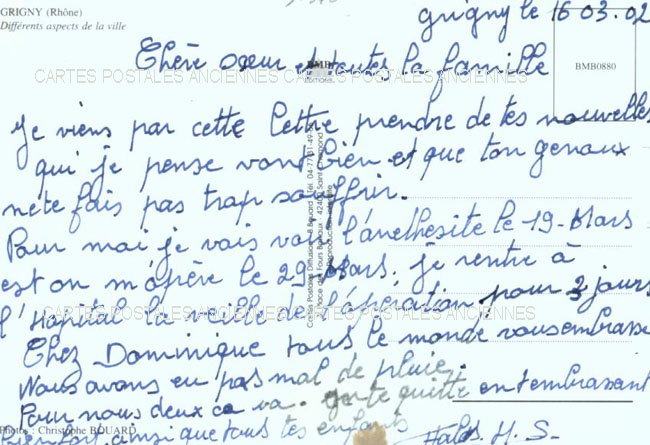 GRIGNY (Rhône)
Différents aspects de la ville
Grigny le 16 03.02
BMB0880
Chère soeur et toutes la famille
CARTES POSTALES ANCIENNES CARTES POSTALES ANCIENNES
BMB
Je viens par cette lettre prendre de tes nouvelles
qui je pense vont bien et que ton genoux
ne te fais pas trop souffrir.
Pour moi je vais voir l'anethésite le 19-Mars
est on m'opère le 29 Mars. je rentre à
l'Hopital la veille de l'opération pour 3 jours
CARTES POSTALES ANCIENNES CARTES POSTALES ANCIENNES
Chez Dominique tous le monde vous embrasse
Nous avons eu pas mal de pluie.
Pour nous deux ca va. Je te quitte en t'embrassant
Photos : Christophe BOUARD
bien fort, ainsi que tous tes enfants
H. S-